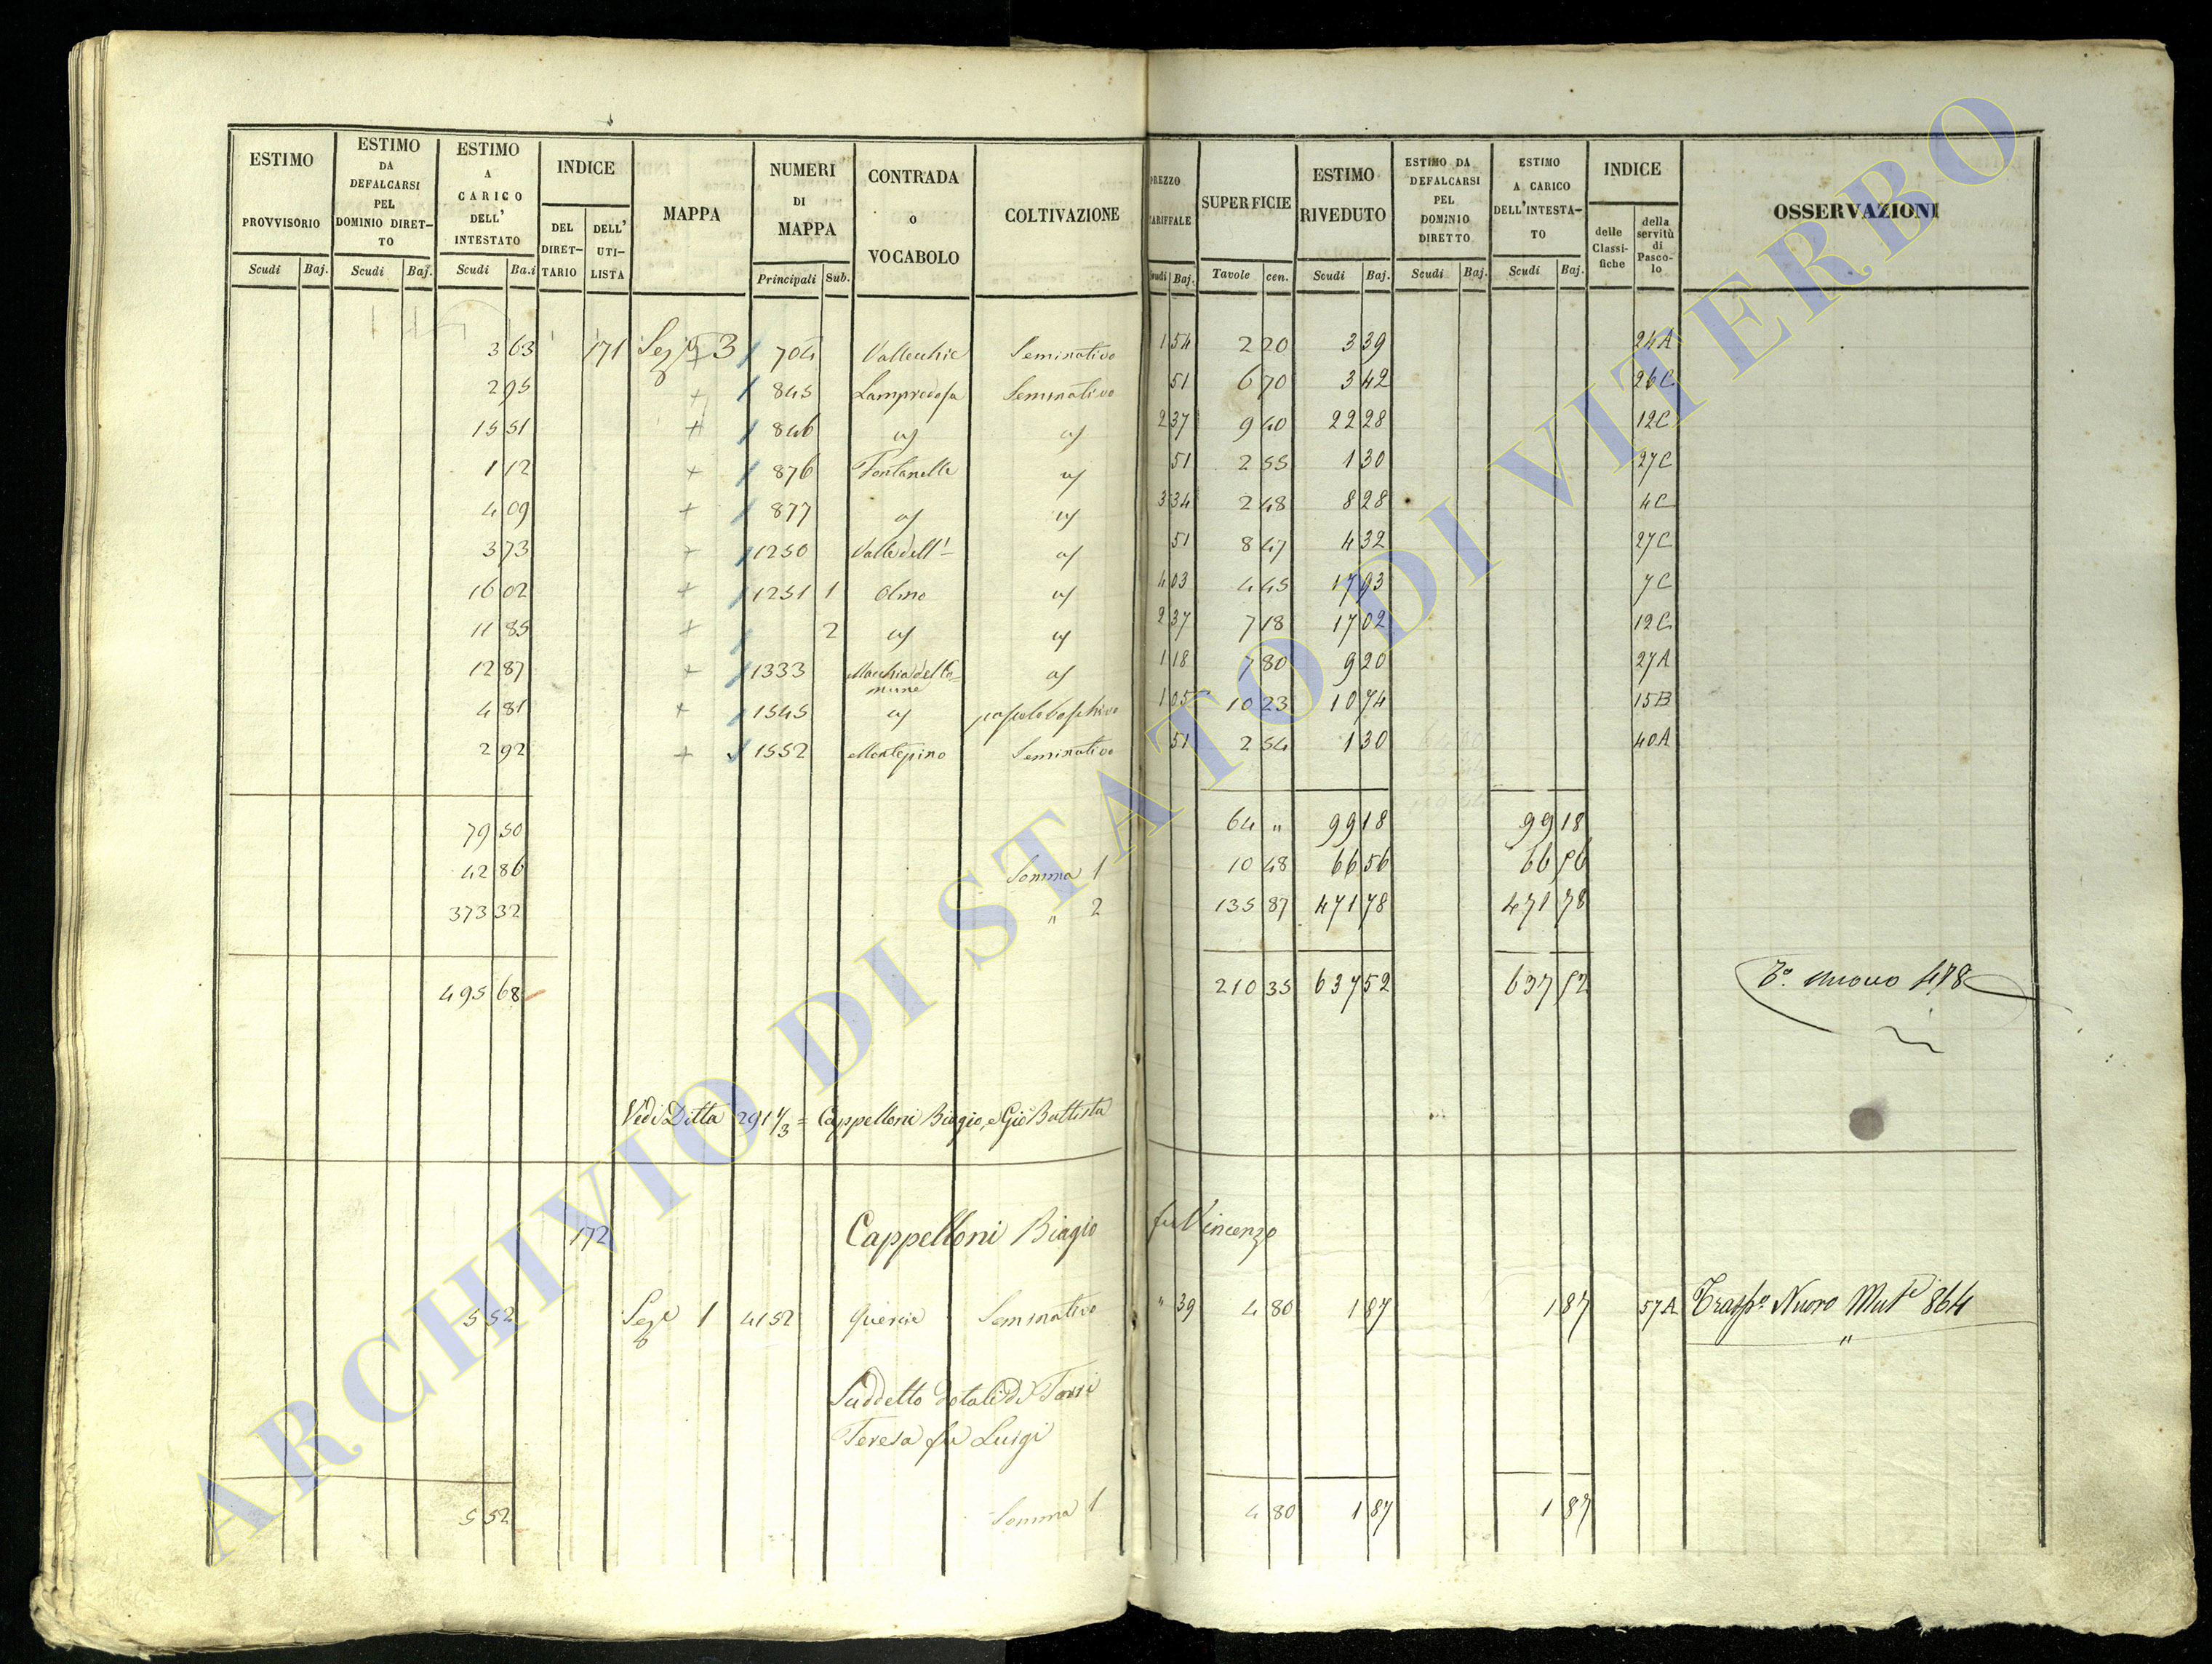 ESTIMO PROVVISORIO | ESTIMO DA DEFALCARSI PEL DOMINIO DIRETTO | ESTIMO A CARICO DELL' INTESTATO | INDICE | MAPPA | NUMERI DI MAPPA | CONTRADA o VOCABOLO | COLTIVAZIONE | PREZZO TARIFFALE | SUPERFICIE | ESTIMO RIVEDUTO | ESTIMO DA DEFALCARSI PEL DOMINIO DIRETTO | ESTIMO A CARICO DELL'INTESTATO | INDICE | OSSERVAZIONI
DEL DIRETTARIO | DELL' UTILISTA | delle Classifiche | della servitù di Pascolo
Scudi | Baj. | Scudi | Baj. | Scudi | Ba.i | Principali | Sub. | Scudi | Baj. | Tavole | cen. | Scudi | Baj. | Scudi | Baj. | Scudi | Baj.
3 63 | 171 | Seze 3 | 704 | Vallecchie | Seminativo | 1 54 | 2 20 | 3 39 | 24A
2 95 | + | 845 | Lampredosa | Seminativo | 51 | 6 70 | 3 42 | 26C
15 51 | + | 846 | a/ | a/ | 2 37 | 9 40 | 22 28 | 12C
1 12 | + | 876 | Fontanelle | a/ | 51 | 2 55 | 1 30 | 27C
4 09 | + | 877 | a/ | a/ | 3 34 | 2 48 | 8 28 | 4C
3 73 | + | 1250 | Valle dell'- | a/ | 51 | 8 47 | 4 32 | 27C
16 02 | + | 1251 | 1 | Olmo | a/ | 4 03 | 4 45 | 17 93 | 7C
11 85 | + | 2 | a/ | a/ | 2 37 | 7 18 | 17 02 | 12C
12 87 | + | 1333 | Macchia del Comune | a/ | 1 18 | 7 80 | 9 20 | 27A
4 81 | + | 1545 | a/ | pascolo boschivo | 1 05 | 10 23 | 10 74 | 15B
2 92 | + | 1552 | Montepino | Seminativo | 51 | 2 54 | 1 30 | 40A
79 50 | 64 " | 99 18 | 99 18
42 86 | Somma 1 | 10 48 | 66 56 | 66 56
373 32 | " 2 | 135 87 | 471 78 | 471 78
495 68 | 210 35 | 637 52 | 637 52 | To. nuovo 478
Vedi Ditta 291 1/3 = Cappelloni Biagio, e Gio Battista
172 | Cappelloni Biagio fu Vincenzo
5 52 | Seze 1 | 4152 | Quercie | Seminativo | " 39 | 4 80 | 1 87 | 1 87 | 57A | Traspo. Nuovo Mute 864
"
Suddetto dotali di Torri
Teresa fu Luigi
5 52 | Somma 1 | 4 80 | 1 87 | 1 87
ARCHIVIO DI STATO DI VITERBO